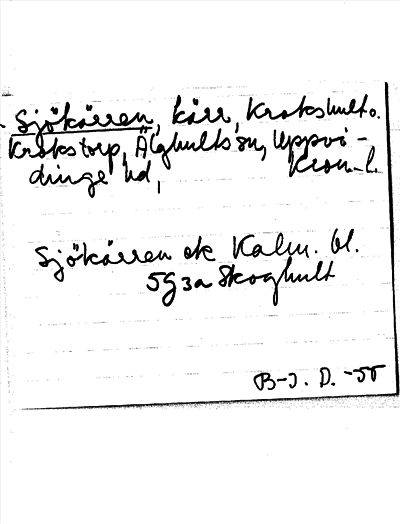 Sjökärren, kärr, Krokshult o.
Krokstorp, Älghults sn, Uppvi-
dinge hd, Kron. l.
Sjökärren ek Kalm. bl.
5G3a Skoghult
B-J. D. -55